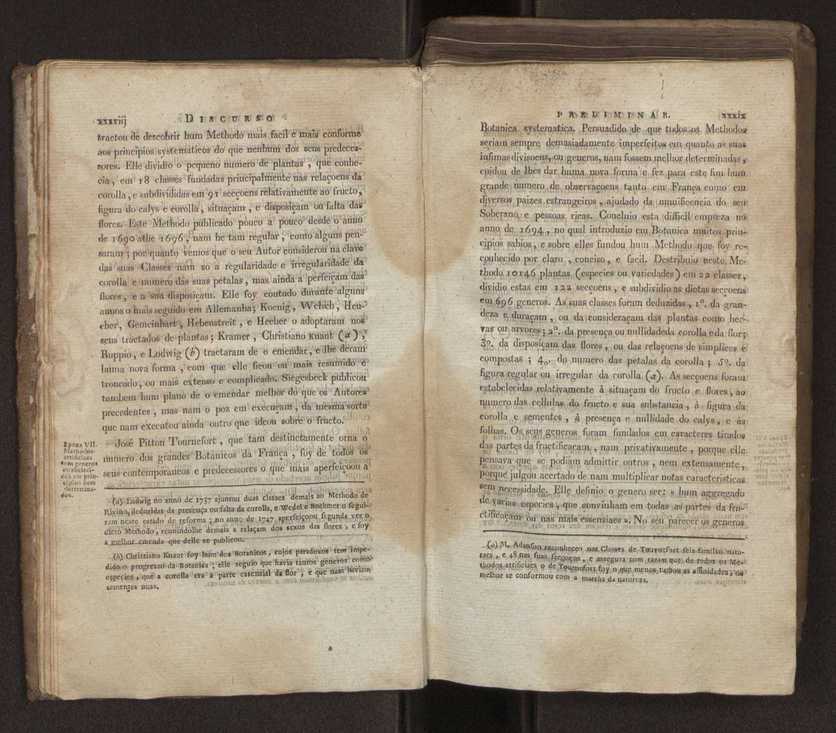 xxxviij DISCURSO
tractou de descobrir hum Methodo mais facil e mais conforme
aos principios systematicos do que nenhum dos seus predeces-
sores. Elle dividio o pequeno numero de plantas, que conhe-
cia, em 18 classes fundadas principalmente nas relaçoens da
corolla, e subdivididas em 91 secçoens relativamente ao fructo,
figura do calys e corolla, situaçam, e disposiçam ou falta das
flores. Este Methodo publicado pouco a pouco desde o anno
de 1690 athe 1696, nam he tam regular, como alguns pen-
saram; porquanto vemos que o seu Autor considerou na clave
das suas Classes nam so a regularidade e irregularidade da
corolla e numero das suas petalas, mas ainda a perfeiçam das
flores, e a sua disposiçam. Elle foy comtudo durante alguns
annos o mais seguido em Allemanha; Koenig, Welsch, Heu-
cher, Gemeinhart, Hebenstreit, e Hecher o adoptaram nos
seus tractados de plantas; Kramer, Christiano knaut (a),
Ruppio, e Ludwig (b) tractaram de o emendar, e lhe deram
huma nova forma, com que elle ficou ou mais resumido e
troncado, ou mais extenso e complicado. Siegesbeck publicou
tambem hum plano de o emendar melhor do que os Autores
precedentes, mas nam o poz em execuçam, da mesma sorte
que nam executou ainda outro que ideou sobre o fructo.
Epoca VII.
Methodos
artificiaes
com generos
estabeleci-
dos em prin-
cipios bem
determina-
dos.
José Pitton Tournefort, que tam destinctamente orna o
numero dos grandes Botanicos da França, foy de todos os
seus contemporaneos e predecessores o que mais aperfeiçoou a
(a) Ludwig no anno de 1757 ajuntou duas classes demais ao Methodo de
Rivino, deduzidas da presença ou falta da corolla, e Wedel e Boehmer o segui-
ram neste estado de reforma; no anno de 1747 aperfeiçoou segunda vez o
dicto Methodo, reunindolhe demais a relaçam dos sexos das flores, e foy
a melhor emenda que delle se publicou.
(b) Christiano Knaut foy hum dos Botanicos, cujos paradoxos tem impe-
dido o progresso da Botanica; elle seguio que havia tantos generos como
especies, que a corolla era a parte essencial da flor, e que nam haviam
sementes nuas.
PRELIMINAR. xxxix
Botanica systematica. Persuadido de que todos os Methodos
seriam sempre demasiadamente imperfeitos em quanto as suas
infimas divisoens, ou generos, nam fossem melhor determinadas,
cuidou de lhes dar huma nova forma e fez para este fim hum
grande numero de observaçoens tanto em França como em
diversos paizes estrangeiros, ajudado da munificencia do seu
Soberano e pessoas ricas. Concluio esta difficil empreza no
anno de 1694, no qual introduzio em Botanica muitos prin-
cipios sabios, e sobre elles fundou hum Methodo que foy re-
conhecido por claro, conciso, e facil. Destribuio neste Me-
thodo 10146 plantas (especies ou variedades) em 22 classes,
dividio estas em 122 secçoens, e subdividio as dictas secçoens
em 696 generos. As suas classes foram deduzidas, 1º. da gran-
deza e duraçam, ou da consideraçam das plantas como her-
vas ou arvores; 2º. da presença ou nullidade da corolla e da flor;
3º. da disposiçam das flores, ou das relaçoens de simplices e
compostas; 4º. do numero das petalas da corolla; 5º. da
figura regular ou irregular da corolla (a). As secçoens foram
estabelecidas relativamente á situaçam do fructo e flores, ao
numero das cellulas do fructo e sua substancia, à figura da
corolla e sementes, à presença e nullidade do calys, e ás
folhas. Os seus generos foram fundados em caracteres tirados
das partes da fructificaçam, nam privativamente, porque elle
pensava que se podiam admittir outros, nem extensamente,
porque julgou acertado de nam multiplicar notas caracteristicas
sem necessidade. Elle definio o genero ser: « hum aggregado
de varias especies, que convinham em todas as partes da fru-
ctificaçam ou nas mais essensiaes ». No seu parecer os generos
(a) M. Adanson reconheceo nas Classes de Tournefort seis familias natu-
raes, e 48 nas suas secçoens, e assegura com razam que de todos os Me-
thodos artificiaes o de Tournefort foy o que menos turbou as affinidades, ou
melhor se conformou com a marcha da natureza.